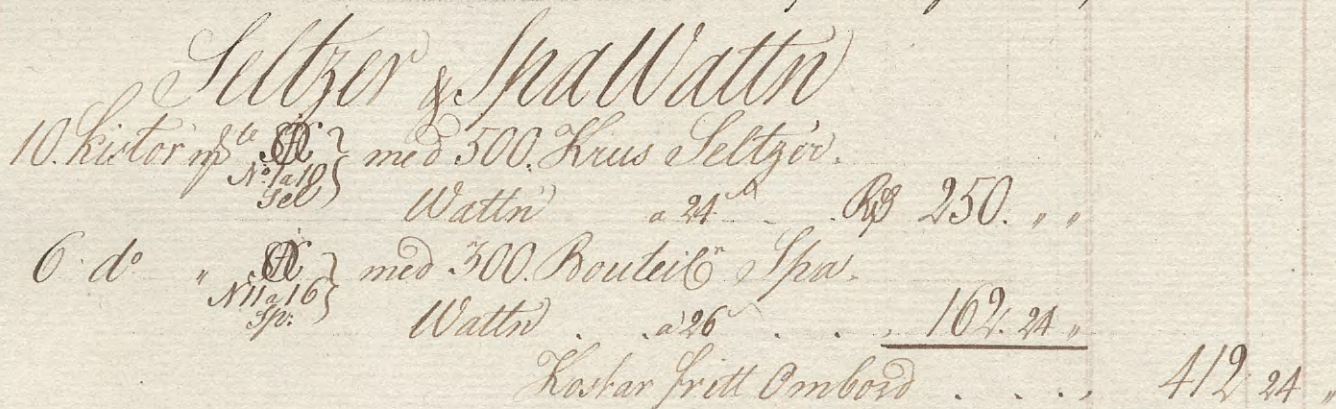 Seltzer & Spa Wattn
10. Kistor m/kte No. 1 a 10 Sel } med 500. Krus Seltzer.
Wattn a 24 . . R 250. " "
6. do " N 11 a 16 Sp: } med 300. Bouteillr Spa.
Wattn . . a 26 . . . 162. 24 "
Kostar fritt Ombord . . . . 412 24 "